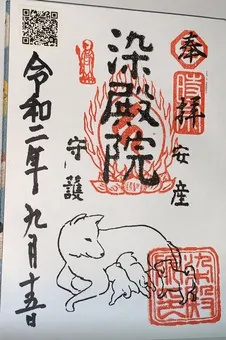 奉拝
安産
染殿院
守護
令和二年九月十五日